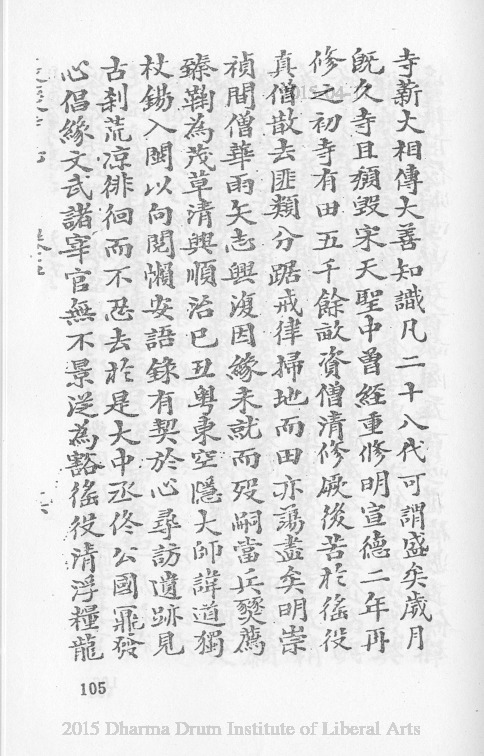 寺薪火相傳大善知識凡二十八代可謂盛矣歲月
既久寺且頹毀宋天聖中曾經重修明宣德二年再
修之初寺有田五千餘畝資僧清修厥後苦於徭役
真僧散去匪類分踞戒律掃地而田亦蕩盡矣明崇
禎間僧華雨矢志興復因緣未就而歿嗣當兵燹薦
臻鞠為茂草清興順治己丑粵東空隱大師諱道獨
杖錫入閩以向閱懶安語錄有契於心尋訪遺跡見
古刹荒凉徘徊而不忍去於是大中丞佟公國鼐發
心倡緣文武諸宰官無不景從為豁徭役清浮糧龍
105
2015 Dharma Drum Institute of Liberal Arts